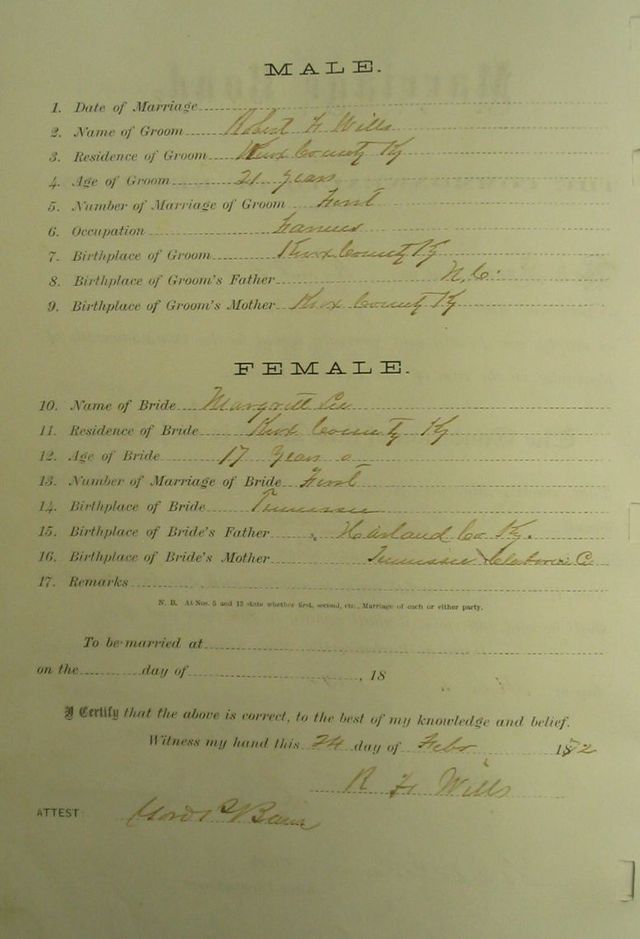 MALE.
1. Date of Marriage
2. Name of Groom Robert F Wills
3. Residence of Groom Knox County Ky
4. Age of Groom 21 years
5. Number of Marriage of Groom First
6. Occupation Farmer
7. Birthplace of Groom Knox County Ky
8. Birthplace of Groom's Father N, C.
9. Birthplace of Groom's Mother Knox County Ky
FEMALE.
10. Name of Bride Margrett Lee
11. Residence of Bride Knox County Ky
12. Age of Bride 17 years
13. Number of Marriage of Bride First
14. Birthplace of Bride Tennessee
15. Birthplace of Bride's Father Harland Co Ky.
16. Birthplace of Bride's Mother Tennessee
17. Remarks
N. B. At Nos. 5 and 13 state whether first, second, etc., Marriage of each or either party.
To be married at
on the day of , 18
I Certify that the above is correct, to the best of my knowledge and belief.
Witness my hand this 24 day of Feby 1872
R F Wills
ATTEST: